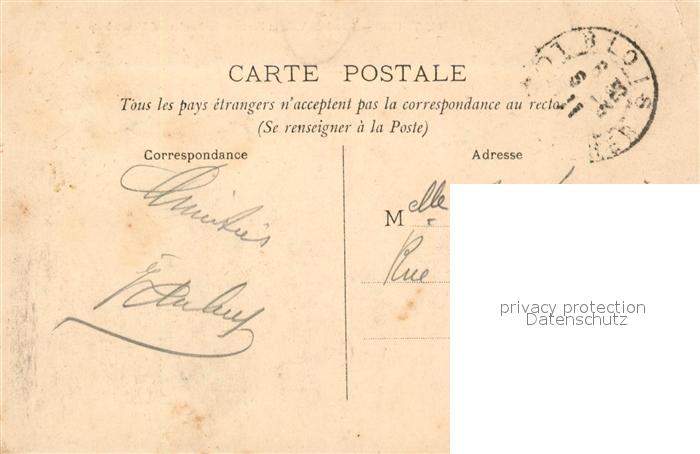 CARTE POSTALE
Tous les pays étrangers n'acceptent pas la correspondance au recto.
(Se renseigner à la Poste)
Correspondance
Adresse
Amitiés
Melle
Rue
BLOIS
privacy protection
Datenschutz